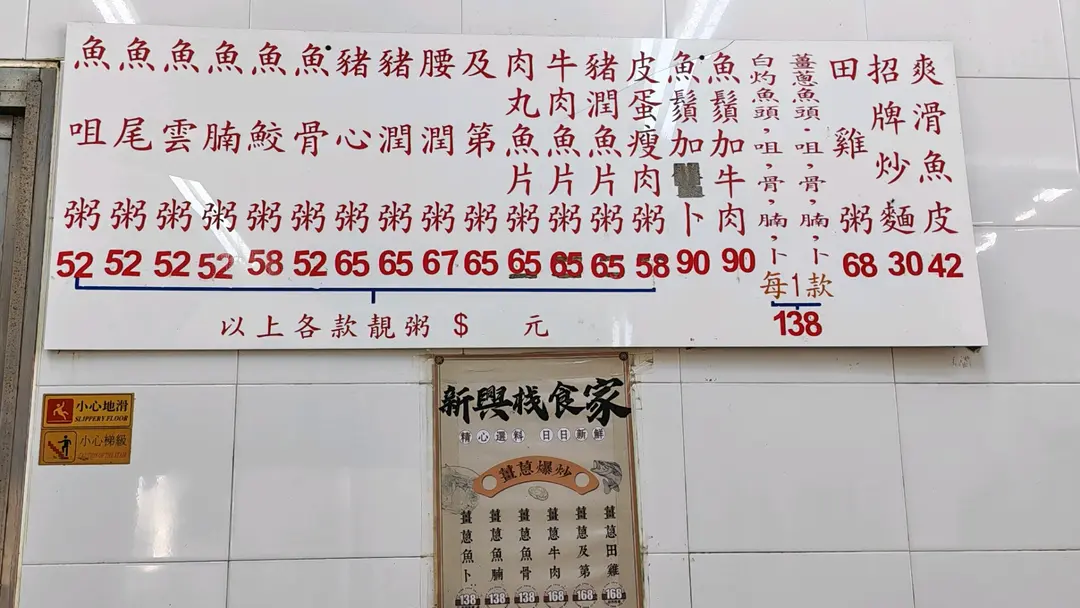 魚咀粥 52
魚尾粥 52
魚雲粥 52
魚腩粥 52
魚鮫粥 58
魚骨粥 52
豬心粥 65
豬潤粥 65
腰潤粥 67
及第粥 65
肉丸魚片粥 65
牛肉魚片粥 65
豬潤魚片粥 65
皮蛋瘦肉粥 58
魚鬚加卜 90
魚鬚加牛肉 90
白灼魚頭,咀,骨,腩,卜
薑蔥魚頭,咀,骨,腩,卜
每1款
138
田雞粥 68
招牌炒麵 30
爽滑魚皮 42
以上各款靚粥 $ 元
小心地滑
SLIPPERY FLOOR
小心梯級
新興栈食家
精心選料 日日新鮮
薑蔥爆炒
薑蔥魚卜 138
薑蔥魚腩 138
薑蔥魚骨 138
薑蔥牛肉 168
薑蔥及第 168
薑蔥田雞 168